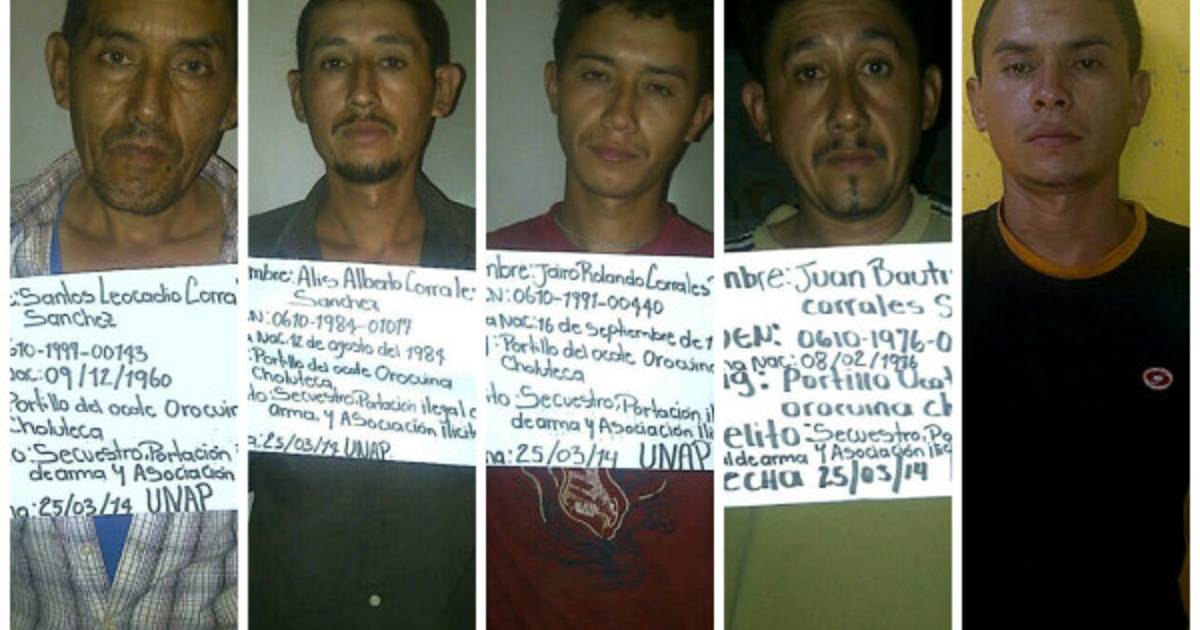 Santos Leocadio Corra
Sanchez
610-1999-00143
09/12/1960
Portillo del ocote Orocuin
Choluteca
o: Secuestro, Portación
de arma y Asociación
a: 25/03/14 UNAP
mbre: Alis Alberto Corrales
Sanchez
N: 0610-1984-01017
Nac: 12 de agosto del 1984
: Portillo del ocote Orocuina
Choluteca
to: Secuestro, Portación ilegal
arma, y Asociación ilicit
a: 25/03/14 UNAP
nbre: Jairo Rolando Corrales
N: 0610-1991-00440
a Nac: 16 de Septiembre de 1
: Portillo del ocote Orocuin
Choluteca
ito: Secuestro, Portación il
de arma y Asociación Ili
na: 25/03/14 UNAP
nbre: Juan Bauti
corrales S
DEN: 0610-1976-0
na Nac: 08/02/1976
ig: Portillo Ocot
orocuina ch
elito: Secuestro, Po
al de arma y Asociación Ilic
ECHA 25/03/14